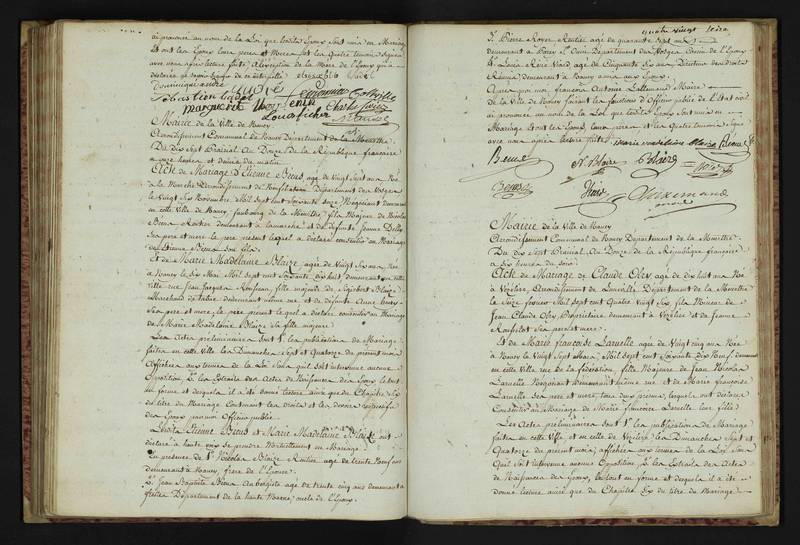 et prononcé au nom de la Loi que lesdits Epoux sont unis en Mariage
Et ont les Epoux leurs pere et Mere et les quatre temoins signés
avec nous après lecture faite, à l'exception de la Mere de l'Epoux qui a
déclaré ne savoir
Dominique André
Sebastien
Marguerit Charles
Mairie de la Ville de Nancy
Arrondissement Communal de Nancy Département de la Meurthe
Du dix Sept Prairial An Douze de la République française
à onze heures et demie du matin
Acte de Mariage d'Etienne Breus, agé de vingt Sept ans Né
à la Marche Arrondissement de Neufchateau Département des Vosges
le vingt Six Novembre Mil Sept cent Soixante Seize Négociant demeurant
en cette Ville de Nancy, faubourg de la Meurthe, fils Majeur de Nicolas
Breus Rentier demeurant à Lamarche et de défunte Jeanne
Ses pere et mere le pere present lequel a déclaré consentir au Mariage
d'Etienne Breus son fils
Et de Marie Madelaine Blaize agée de Vingt Six ans Née
à Nancy le Six Mai Mil Sept cent soixante dix huit demeurante en cette
Ville rue Jean Jacques Rousseau, fille majeure de Sigisbert Blaize
Marchand demeurant même rue et de défunte Anne
Ses pere et mere, le pere present lequel a déclaré consentir au Mariage
de Marie Madelaine Blaize Sa fille majeure
Les Actes preliminaires Sont 1.° les publications de Mariage
faites en cette Ville les Dimanches Sept et Quatorze du present mois
Affichées aux termes de la Loi Sans qu'il soit intervenu aucune
Opposition 2.° les Extraits des Actes de Naissance des Epoux le tout
en forme et desquels il a été donné lecture ainsi que du Chapitre Six
du titre du Mariage Contenant les droits et les devoirs respectifs
des Epoux par moi Officier public
Lesdits Etienne Breus et Marie Madelaine Blaize ont
déclaré à haute voix se prendre Mutuellement en Mariage
En presence de S.r Nicolas Blaize Rentier agé de trente Neuf ans
demeurant à Nancy, frere de l'Epouse
2. Jean Baptiste Breus Aubergiste agé de trente cinq ans demeurant à
Département de la haute Marne, oncle de l'Epoux
quatre vingt treize
3. Pierre Royer Rentier agé de quarante
demeurant à Département des Vosges Cousin de l'Epoux
4. Louis René Viard agé de Cinquante Six ans Directeur des droits
Réunis demeurant à Nancy amis aux Epoux
Après quoi moi, françois Antoine Lallemand Maire
de la Ville de Nancy faisant les fonctions d'Officier public de l'Etat civil
ai prononcé au nom de la Loi que lesdits Epoux sont unis en
Mariage Et ont les Epoux, leurs peres, et les Quatre temoins signé
avec nous après lecture faite. Marie madeleine Blaize Breus
Breus N. Blaize Blaize
Breus
Mairie de la Ville de Nancy
Arrondissement Communal de Nancy Département de la Meurthe
Du dix Sept Prairial An Douze de la République française
à Six heures du soir
Acte de Mariage de Claude Olry agé de dix huit ans Né
à Vézelize, Arrondissement de Lunéville Département de la Meurthe
le Seize fevrier Mil Sept cent Quatre vingt Six, fils Mineur de
Jean Claude Olry Propriétaire demeurant à Vézelize et de Jeanne
Ses pere et mere
Et de Marie françoise Laruelle agée de Vingt cinq ans Née
à Nancy le Vingt Sept Mars Mil Sept cent Soixante dix Neuf demeurant
en cette Ville, rue de la fédération, fille Majeure de Jean Nicolas
Laruelle Négociant demeurant même rue et de Marie françoise
Laruelle Ses pere et mere, tous deux presens, lesquels ont déclaré
Consentir au Mariage de Marie françoise Laruelle leur fille
Les Actes preliminaires Sont 1.° les publications de Mariage
faites en cette Ville et en celle de Vézelize les Dimanches Sept et
Quatorze du present mois, affichées aux termes de la Loi Sans
qu'il Soit intervenu aucune Opposition 2.° les Extraits des Actes
de Naissance des Epoux, le tout en forme et desquels il a été
donné lecture ainsi que du Chapitre Six du titre du Mariage